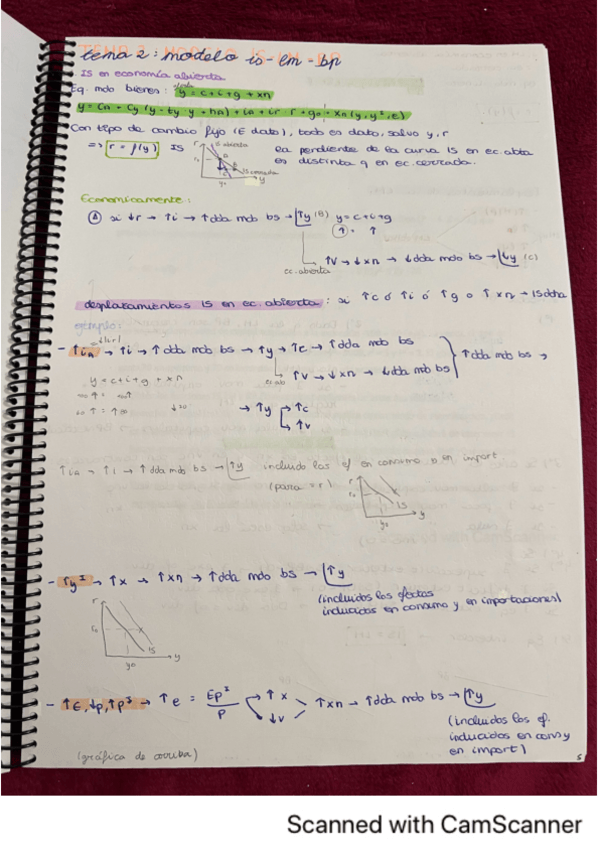 tema 2: modelo is-lm-bp
IS en economía abierta
Eq. mdo bienes: y = c+i+g + xn
y = ca + cy (y - ty · y + ha) + ia + ir · r + g0 + xn (y, y*, e)
Con tipo de cambio fijo (E dato), todo es dato, salvo y, r
=> r = f(y) IS
r IS abierta
r0
IS cerrada
y0 y
la pendiente de la curva IS en ec. abta
es distinta q en ec. cerrada.
Económicamente:
si ↓r → ↑i → ↑dda mdo bs → ↑y (B) y = c+i+g
↑ = ↑
ec. abierta
↑v → ↓xn → ↓dda mdo bs → ↓y (C)
desplazamientos IS en ec. abierta: si ↑c ó ↑i ó ↑g o ↑xn → IS dcha
ejemplo:
- ↑ia → ↑i → ↑dda mdo bs → ↑y → ↑c → ↑dda mdo bs
↑dda mdo bs >
ec ab ↑v → ↓xn → ↓dda mdo bs
y = c+i+g + xn
→ ↑y → ↑c
↑v
↑ia → ↑i → ↑dda mdo bs → ↑y incluido los ef en consumo y en import
(para = r)
r
r0
IS
y0 y
- ↑y* → ↑x → ↑xn → ↑dda mdo bs → ↑y
(incluidos los efectos
inducidos en consumo y en importaciones)
r
r0
IS
y0 y
- ↑E, ↓p, ↑p* → ↑e = Ep*/p → ↑x ↓v > ↑xn → ↑dda mdo bs → ↑y
(incluidos los ef.
inducidos en cons y
en import)
(gráfica de arriba)
5
Scanned with CamScanner